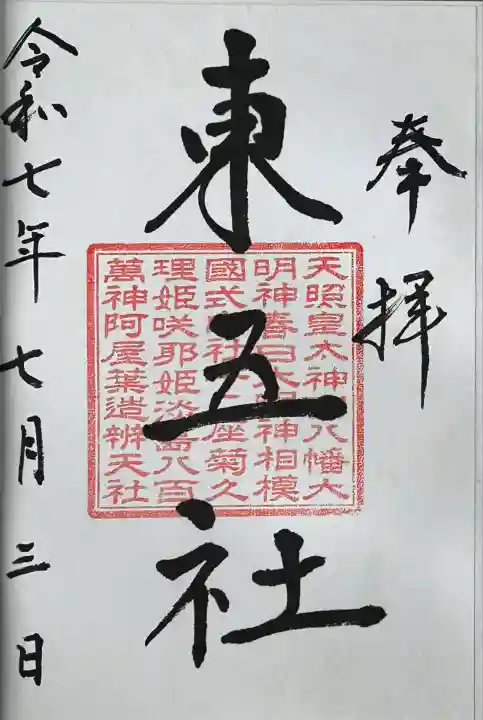 奉拝
東五社
天照皇太神 八幡大
明神春日大 神相模
國式 社 座菊久
理姫咲耶姫淡島八百
萬神阿屋葉造辨天社
令和七年七月三日